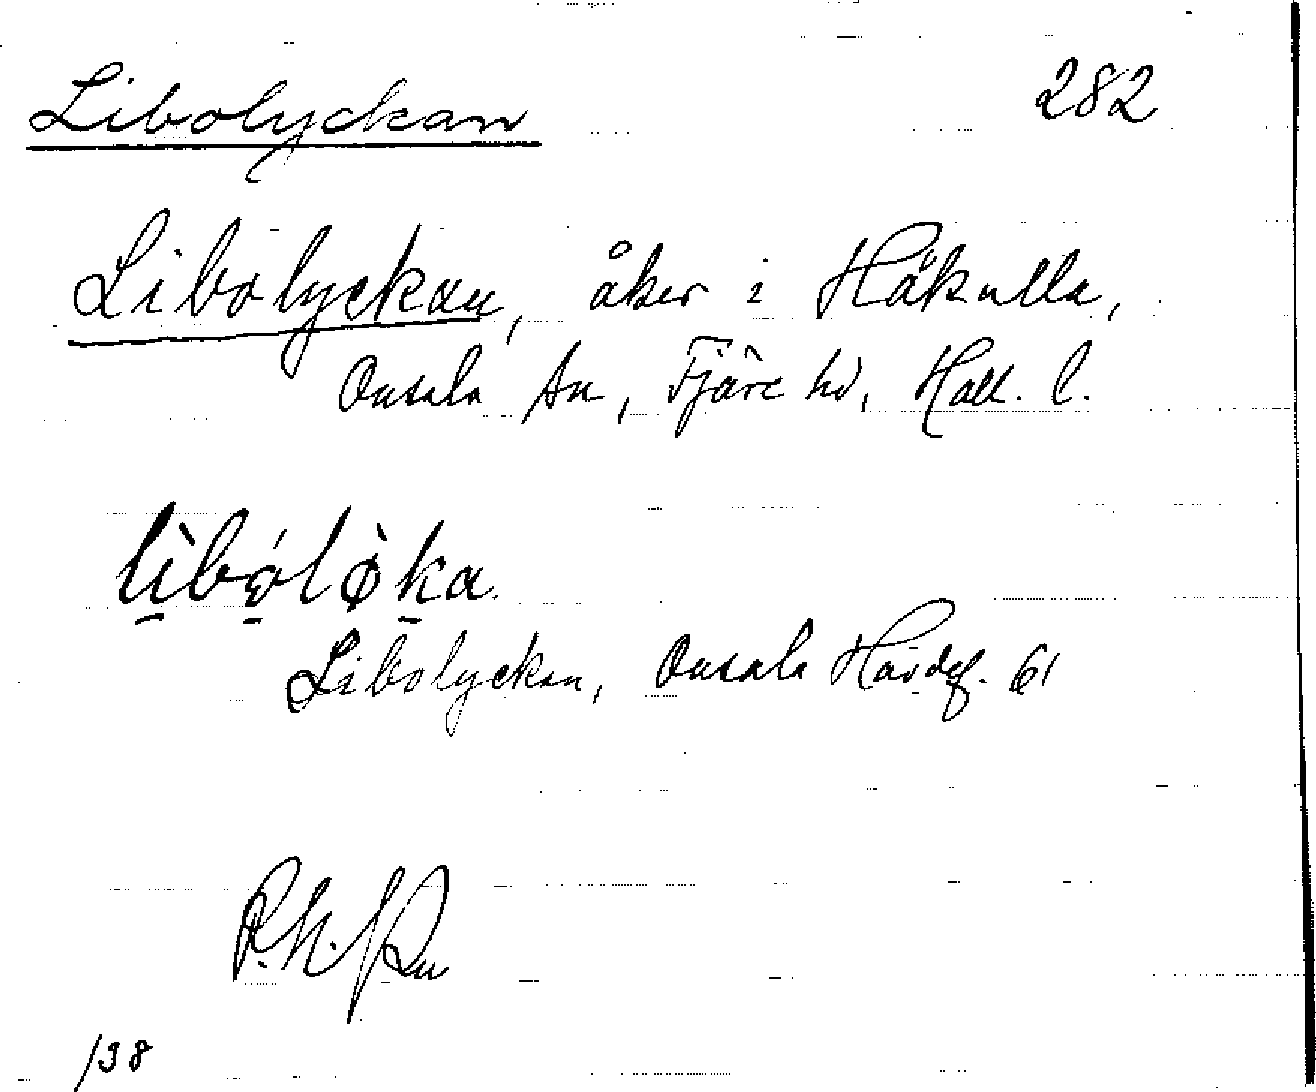 Libolyckan 282
Libolyckan, åker i Håkulla,
Onsala sn, Fjäre hd, Hall. l.
lìbǫ́lø̀ka
Libolyckan, Onsala Hävdef. 61
P.N.
/38